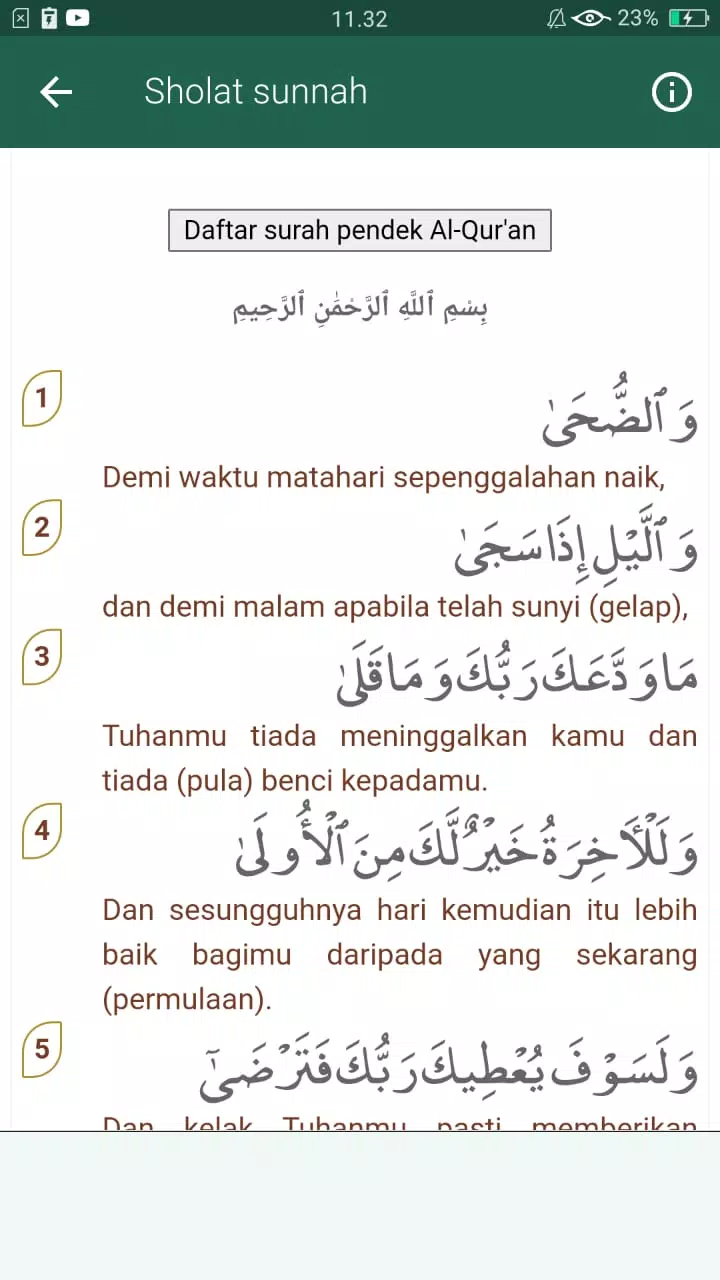 11.32
23%
Sholat sunnah
Daftar surah pendek Al-Qur'an
بِسْمِ ٱللَّهِ ٱلرَّحْمَٰنِ ٱلرَّحِيمِ
1
وَٱلضُّحَىٰ
Demi waktu matahari sepenggalahan naik,
2
وَٱلَّيْلِ إِذَا سَجَىٰ
dan demi malam apabila telah sunyi (gelap),
3
مَا وَدَّعَكَ رَبُّكَ وَمَا قَلَىٰ
Tuhanmu tiada meninggalkan kamu dan
tiada (pula) benci kepadamu.
4
وَلَلْأَخِرَةُ خَيْرٌ لَّكَ مِنَ ٱلْأُولَىٰ
Dan sesungguhnya hari kemudian itu lebih
baik bagimu daripada yang sekarang
(permulaan).
5
وَلَسَوْفَ يُعْطِيكَ رَبُّكَ فَتَرْضَىٰٓ
Dan kelak Tuhanmu pasti memberikan